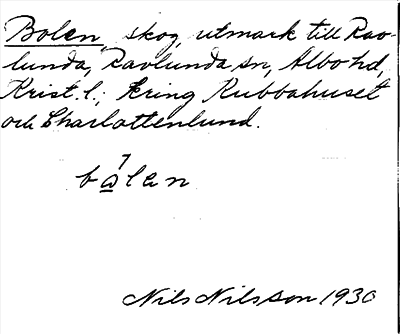 Bolen, skog, utmark till Rav-
lunda, Ravlunda sn, Albo hd,
Krist. l.; kring Rubbahuset
och Charlottenlund.
bò̲len
Nils Nilsson 1930